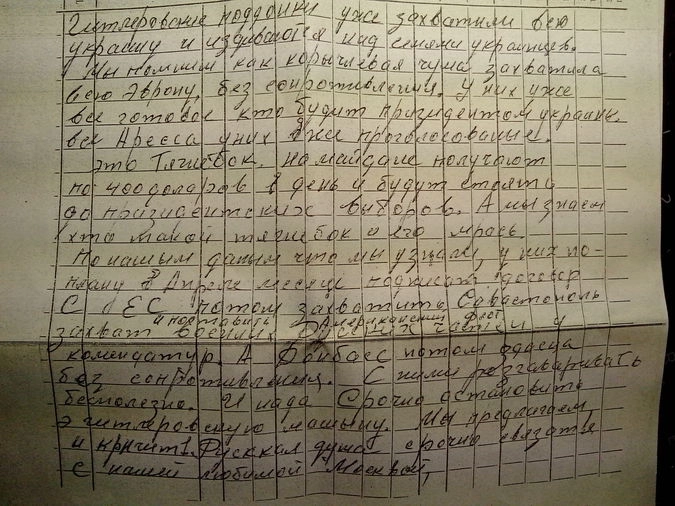 Гитлеровские поддонки уже захватили всю
украину и издеваются над семями украинцев.
Мы помним как коричлевая чума захватила
всю Эвропу, без сопротивления. У них уже
все готовое кто будит призидентом украины.
все Адресса у них уже проголосованые.
это Тягнебок. на майдане получают
по 400доларов в день и будут стоять
до призидентских выборов. А мы знаем
кто такой тягнебок и его мрась.
По нашым даным что мы узнали, у них по-
плану в Апреле месяце подписать договор
С ЕС потом захватить Севастополь
и поставить Американский Флот
захват военых Руских частей и
комендатур. А Донбасс потом здасца
без сопротивления. С ними розгаваривать
бесполезно. И нада Срочно остановить
эгитлеровскую машыну. Мы предлагаем
и кричить Русккая душа срочно связатя
с нашей любимой Москвой,